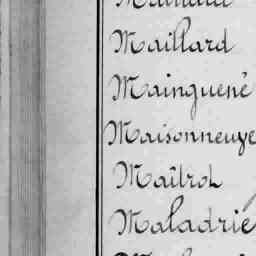 Maillard
Mainguené
Maisonneuve
Maîtrot
Maladrie